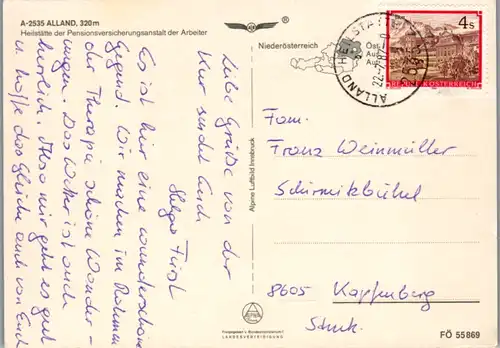 A-2535 ALLAND, 320 m
Heilstätte der Pensionsversicherungsanstalt der Arbeiter
Niederösterreich
ALLAND HEILSTÄTTE
22.-7.87
4 S
REPUBLIK ÖSTERREICH
Liebe Grüße von der
Kur sendet Euch
Helga Fürst
Es ist hier eine wunderschöne
Gegend. Wir machen im Rahmen
der Therapie schöne Wander-
ungen. Das Wetter ist auch
herrlich. Also mir geht es gut
u. hoffe das Gleiche auch von Euch
Alpine Luftbild Innsbruck
Fam.
Franz Weinmüller
Schirmitzbühel
8605 Kapfenberg
Stmk.
FÖ 55869